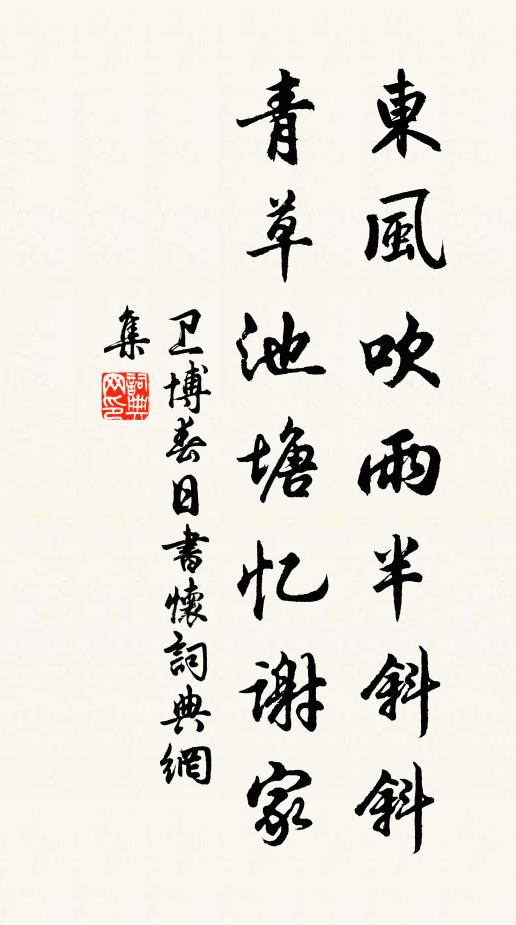 東風吹雨半斜斜
青草池塘忆謝家
卫博春日書懷詞典網
集
詞典网印